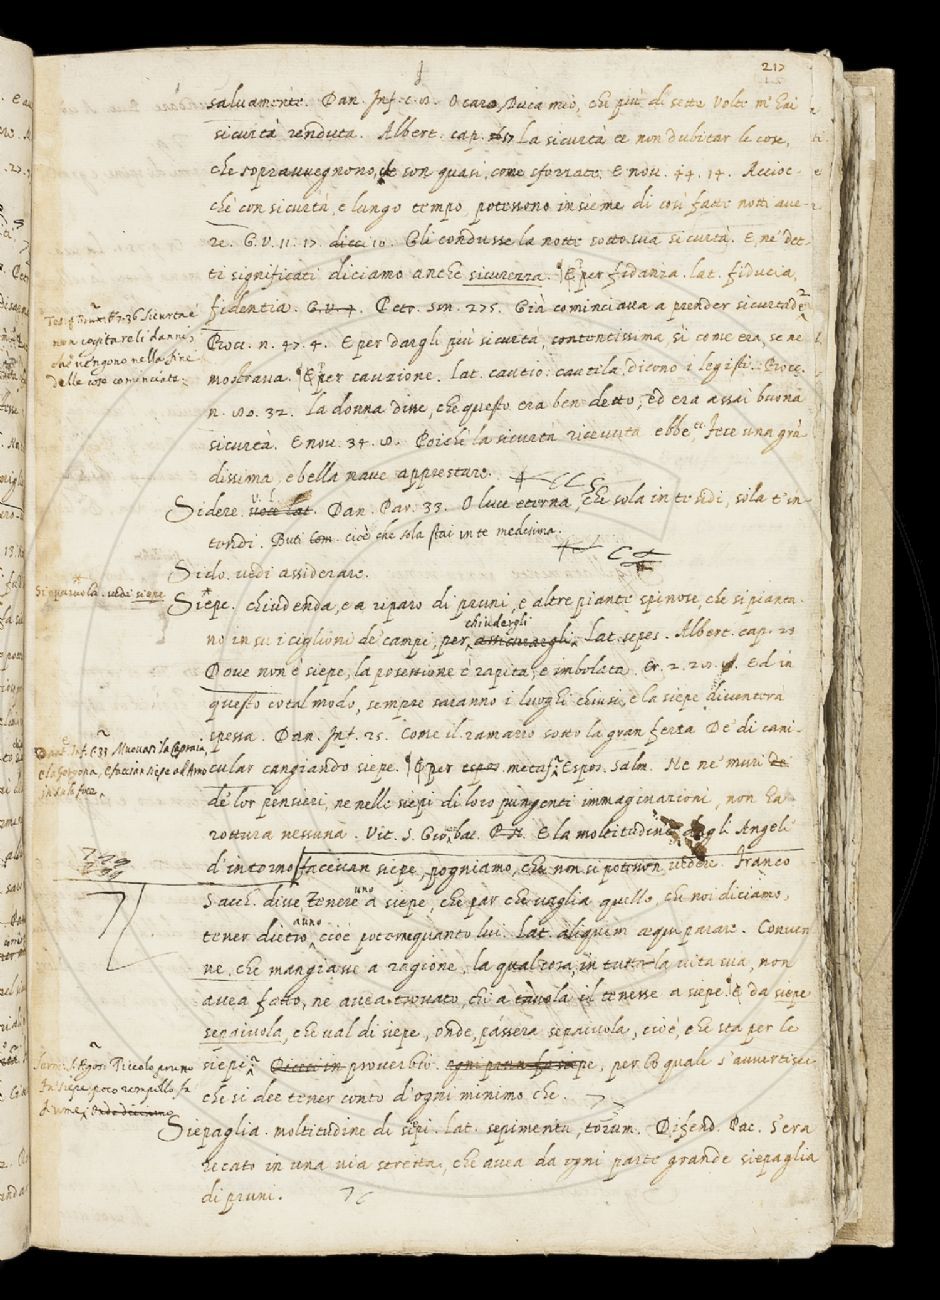 217
salvamente. Dan. Inf. c. 8. O caro Duca mio, che più di sette volte m'hai
sicurtà renduta. Albert. cap. 57 La sicurtà è non dubitar le cose,
che sopravvegnono, e son quasi, come sforzate. E nov. 44. 14. Accioc-
chè con sicurtà, e lungo tempo potesseno insieme di così fatte notti ave-
re. G. V. 11. 17. dieci 10. Gli condusse la notte sotto sua sicurtà. E ne' det-
ti significati diciamo anche sicurezza. ¶ E per fidanza. lat. fiducia,
fidentia. G. V. 4. Petr. son. 275. Già cominciava a prender sicurtade
non compareli danni,
che vengono nella fine
delle cose cominciate.
Bocc. n. 47. 4. E per dargli più sicurtà, contentissima, sì come era, se ne
mostrava. ¶ E per cauzione. lat. cautio: cautela, dicono i legisti. Bocc.
n. 80. 32. La donna disse, che questo era ben detto, ed era assai buona
sicurtà. E nov. 34. 8. Poichè la sicurtà ricevuta ebbe &c fece una grã
dissima, e bella nave apprestare.
Sidere. v. L. voce lat. Dan. Par. 33. O luce eterna, che sola in te sidi, sola t'in-
tendi. Buti com. cioè che sola stai in te medesima.
Sido. vedi assiderare.
Siepaiuola. vedi siepe
Siepe. chiudenda, e a riparo di pruni, e altre piante spinose, che si pianta-
no in su i ciglioni de' campi, per chiudergli assicurargli. Lat. sepes. Albert. cap. 23
Dove non è siepe, la possessione è rapita, e imbolata. Cr. 2. 28. Ed in
questo cotal modo, sempre saranno i luoghi chiusi, e la siepe diventerà
spessa. Dan. Inf. 25. Come il ramarro sotto la gran fersa De' dì cani-
Dan. Inf. C. 33 Muovasi la Capraia,
e la Gorgona, E faccian siepe ad Arno
in su la foce.
cular cangiando siepe. ¶ E per metaf. Espos. Salm. Ne ne' muri
de' lor pensieri, ne nelle siepi di loro pungenti immaginazioni, non ha
rottura nessuna. Vit. S. Gio. bat. E la moltitudine degli Angeli
d'intorno facevan siepe, pogniamo, che non si potesson vedere. Franco
Sacch. disse Tenere uno a siepe, che par che vaglia quello, che noi diciamo,
tener dietro a uno, cioè poter quanto lui. Lat. aliquem aequiparare. Conven
ne, che mangiasse a ragione, la qual cosa, in tutta la vita sua, non
avea fatto, ne avea trovato, chi a tavola il tenesse a siepe. ¶ E da siepe
sepaiuola, che val di siepe, onde, passera sepaiuola, cioè, che sta per le
siepi. Dicesi in proverbio ogni prun fa siepe, per lo quale s'avvertisce
che si dee tener conto d'ogni minimo che.
Piccolo pruno
in siepe, poco rampollo fa
fiume, onde diciamo
Siepaglia. moltitudine di siepi. lat. sepimentum, torum. Difend. Pac. S'era
recato in una via stretta, che avea da ogni parte grande siepaglia
di pruni.